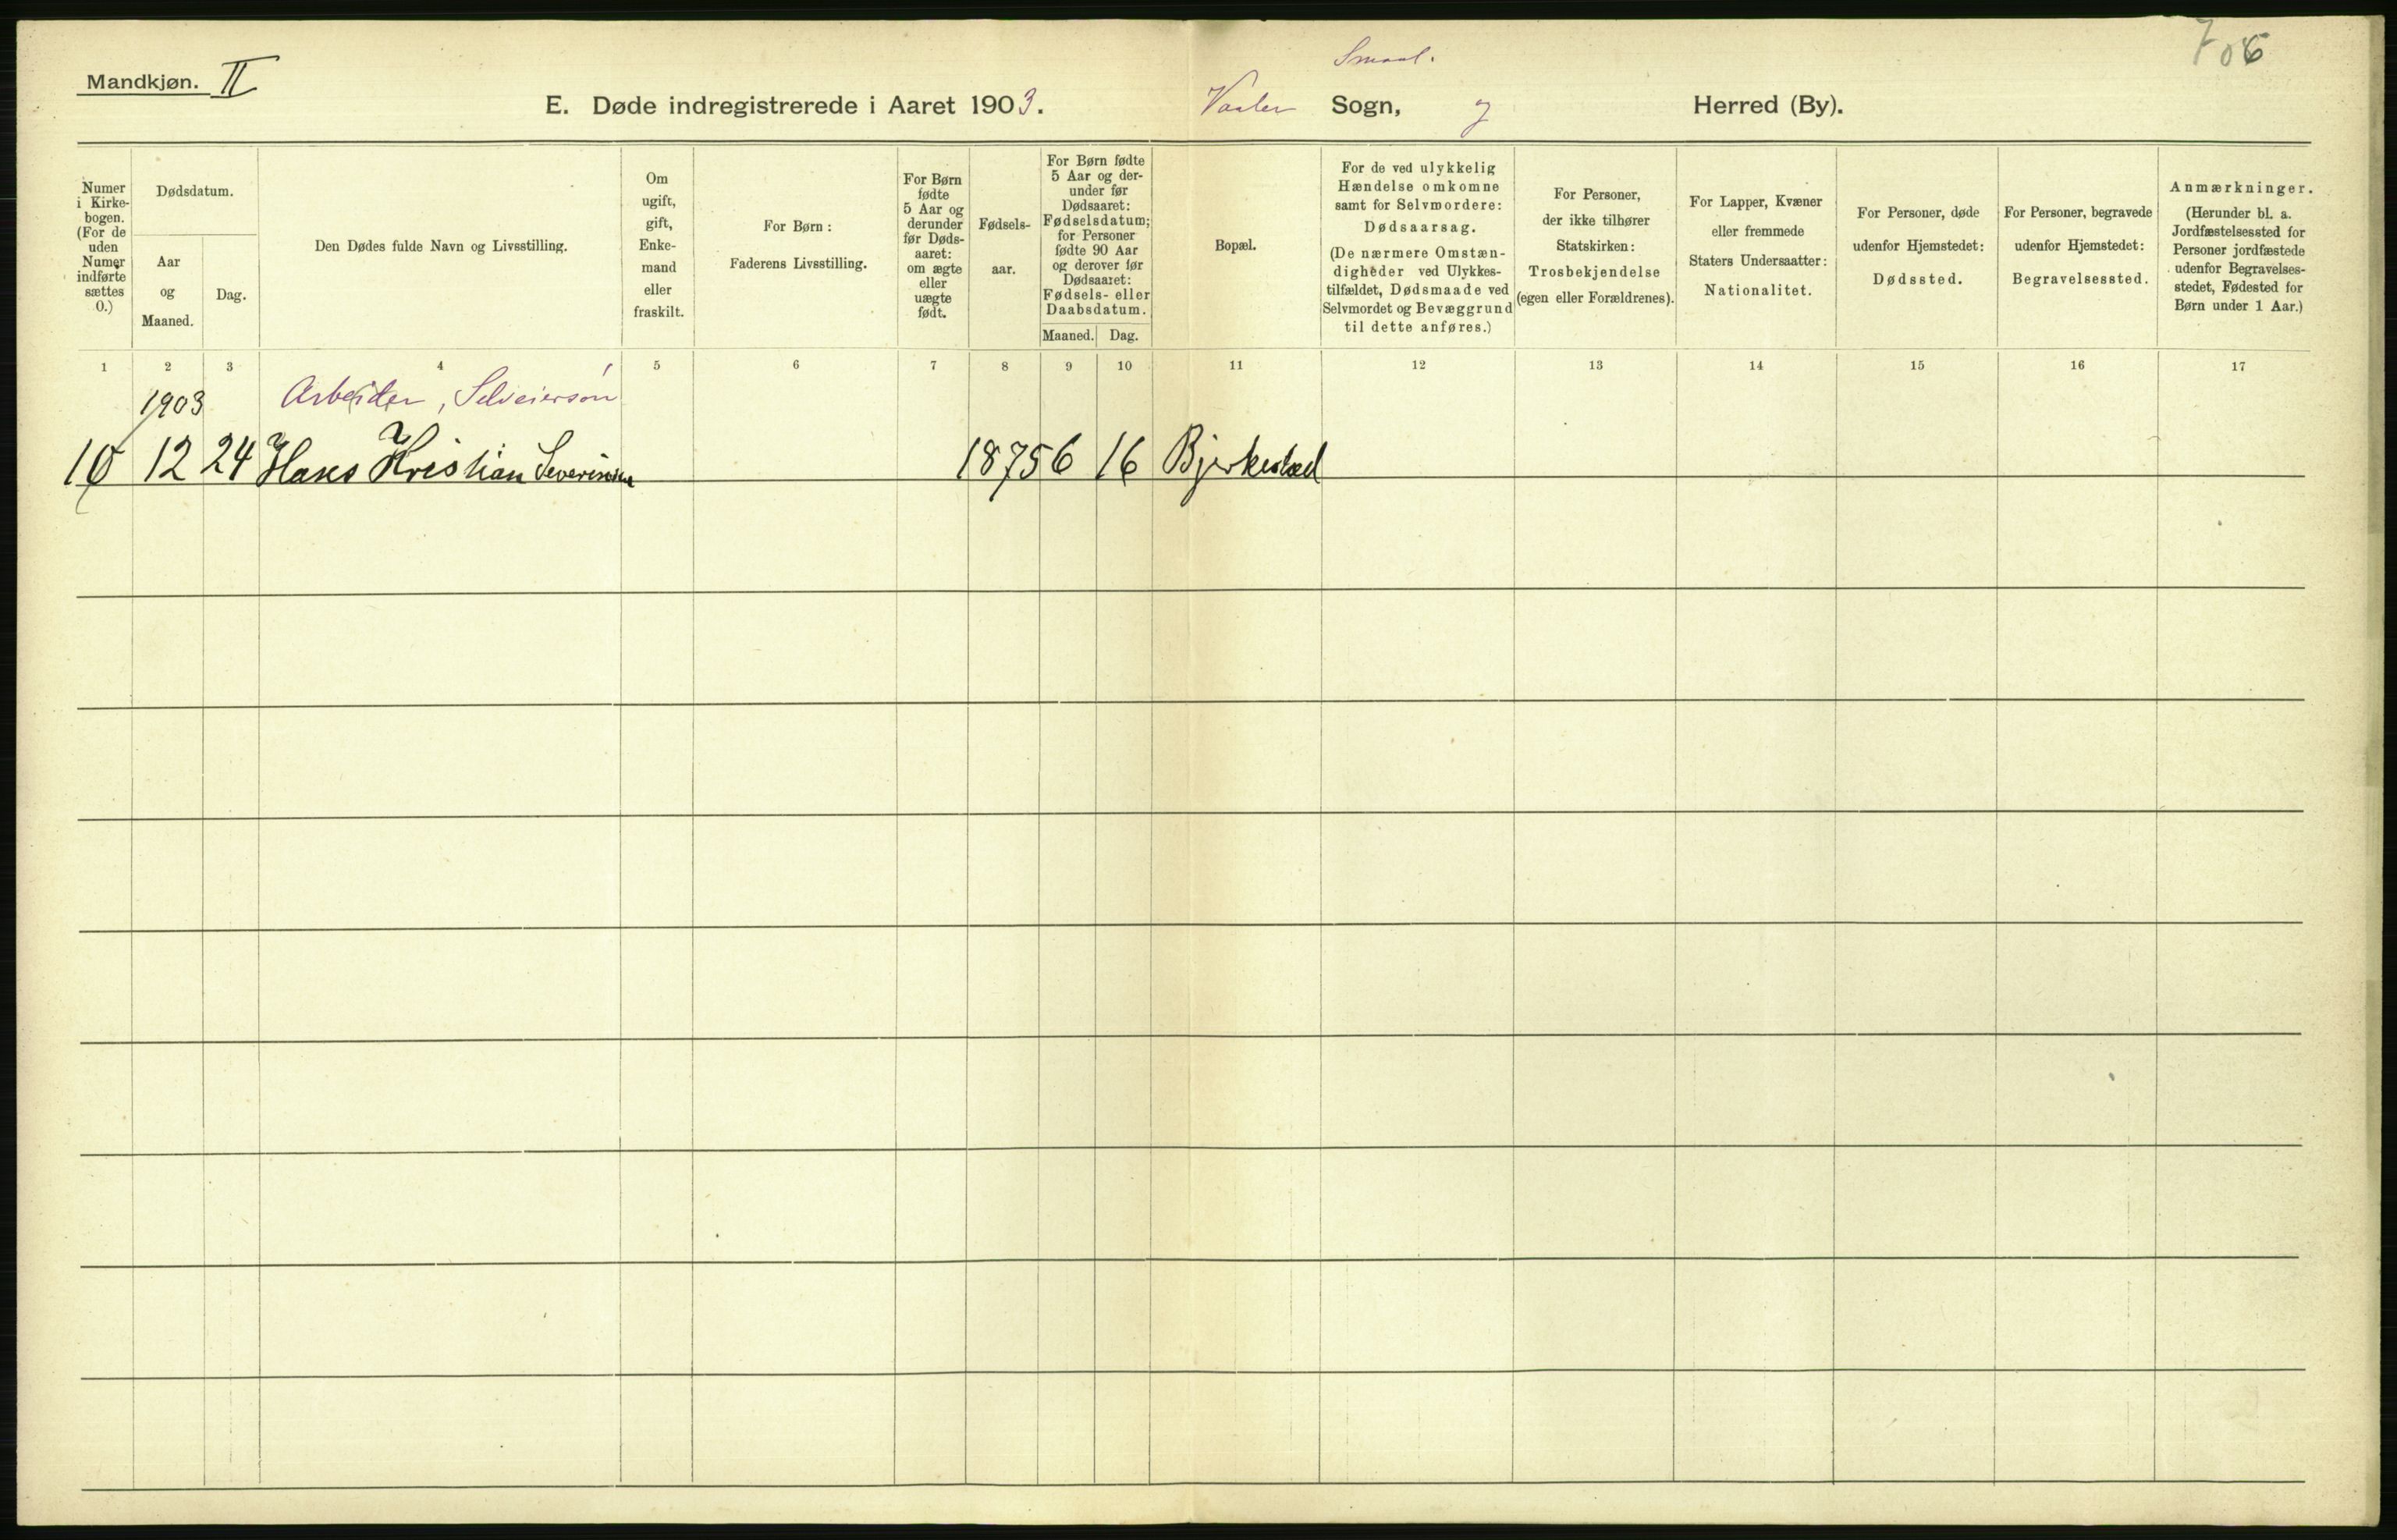 Smaal.
706
Mandkjøn. II
E. Døde indregistrerede i Aaret 1903. Vaaler Sogn, Herred (By).
Numer
i Kirke-
bogen.
(For de
uden
Numer
indførte
sættes
0.)
Dødsdatum.
Aar
og
Maaned.
Dag.
Den Dødes fulde Navn og Livsstilling.
Om
ugift,
gift,
Enke-
mand
eller
fraskilt.
For Børn:
Faderens Livsstilling.
For Børn
fødte
5 Aar og
derunder
før Døds-
aaret:
om ægte
eller
uægte
født.
Fødsels-
aar.
For Børn fødte
5 Aar og der-
under før
Dødsaaret:
Fødselsdatum;
for Personer
fødte 90 Aar
og derover før
Dødsaaret:
Fødsels- eller
Daabsdatum.
Maaned. Dag.
Bopæl.
For de ved ulykkelig
Hændelse omkomne
samt for Selvmordere:
Dødsaarsag.
(De nærmere Omstæn-
digheder ved Ulykkes-
tilfældet, Dødsmaade ved
Selvmordet og Bevæggrund
til dette anføres.)
For Personer,
der ikke tilhører
Statskirken:
Trosbekjendelse
(egen eller Forældrenes).
For Lapper, Kvæner
eller fremmede
Staters Undersaatter:
Nationalitet.
For Personer, døde
udenfor Hjemstedet:
Dødssted.
For Personer, begravede
udenfor Hjemstedet:
Begravelsessted.
Anmærkninger.
(Herunder bl. a.
Jordfæstelsessted for
Personer jordfæstede
udenfor Begravelses-
stedet, Fødested for
Børn under 1 Aar.)
1 2 3 4 5 6 7 8 9 10 11 12 13 14 15 16 17
1903 Arbeider, Selveiersøn
10 12 24 Hans Kristian Severinsen 1875 6 16 Bjerkestad